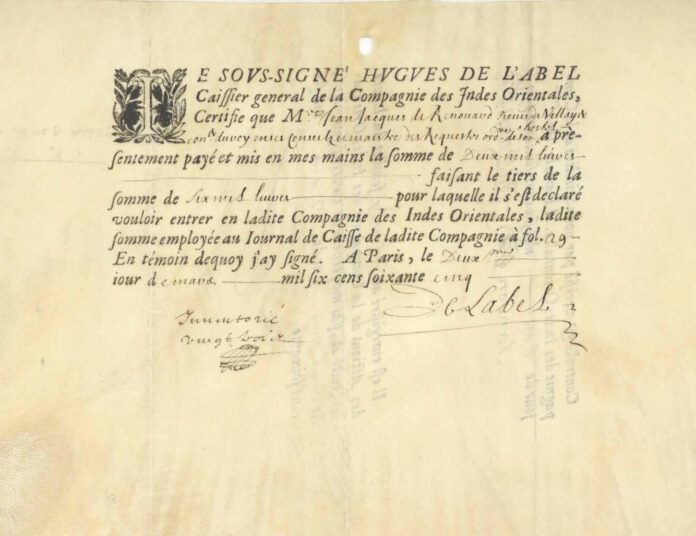 IE SOVS-SIGNE' HVGVES DE L'ABEL
Caissier general de la Compagnie des Indes Orientales,
Certifie que Mre Jean Jacques le Renouard
conr du roy en ses Conseils maistre des Requestes ordre de son hostel a pre-
sentement payé et mis en mes mains la somme de Deux mil livres
faisant le tiers de la
somme de six mil livres pour laquelle il s'est declaré
vouloir entrer en ladite Compagnie des Indes Orientales, ladite
somme employée au Iournal de Caisse de ladite Compagnie à fol. 29
En témoin dequoy j'ay signé. A Paris, le Deuxme
iour de mars mil six cens soixante cinq
De Label
Inventorié
vingt trois